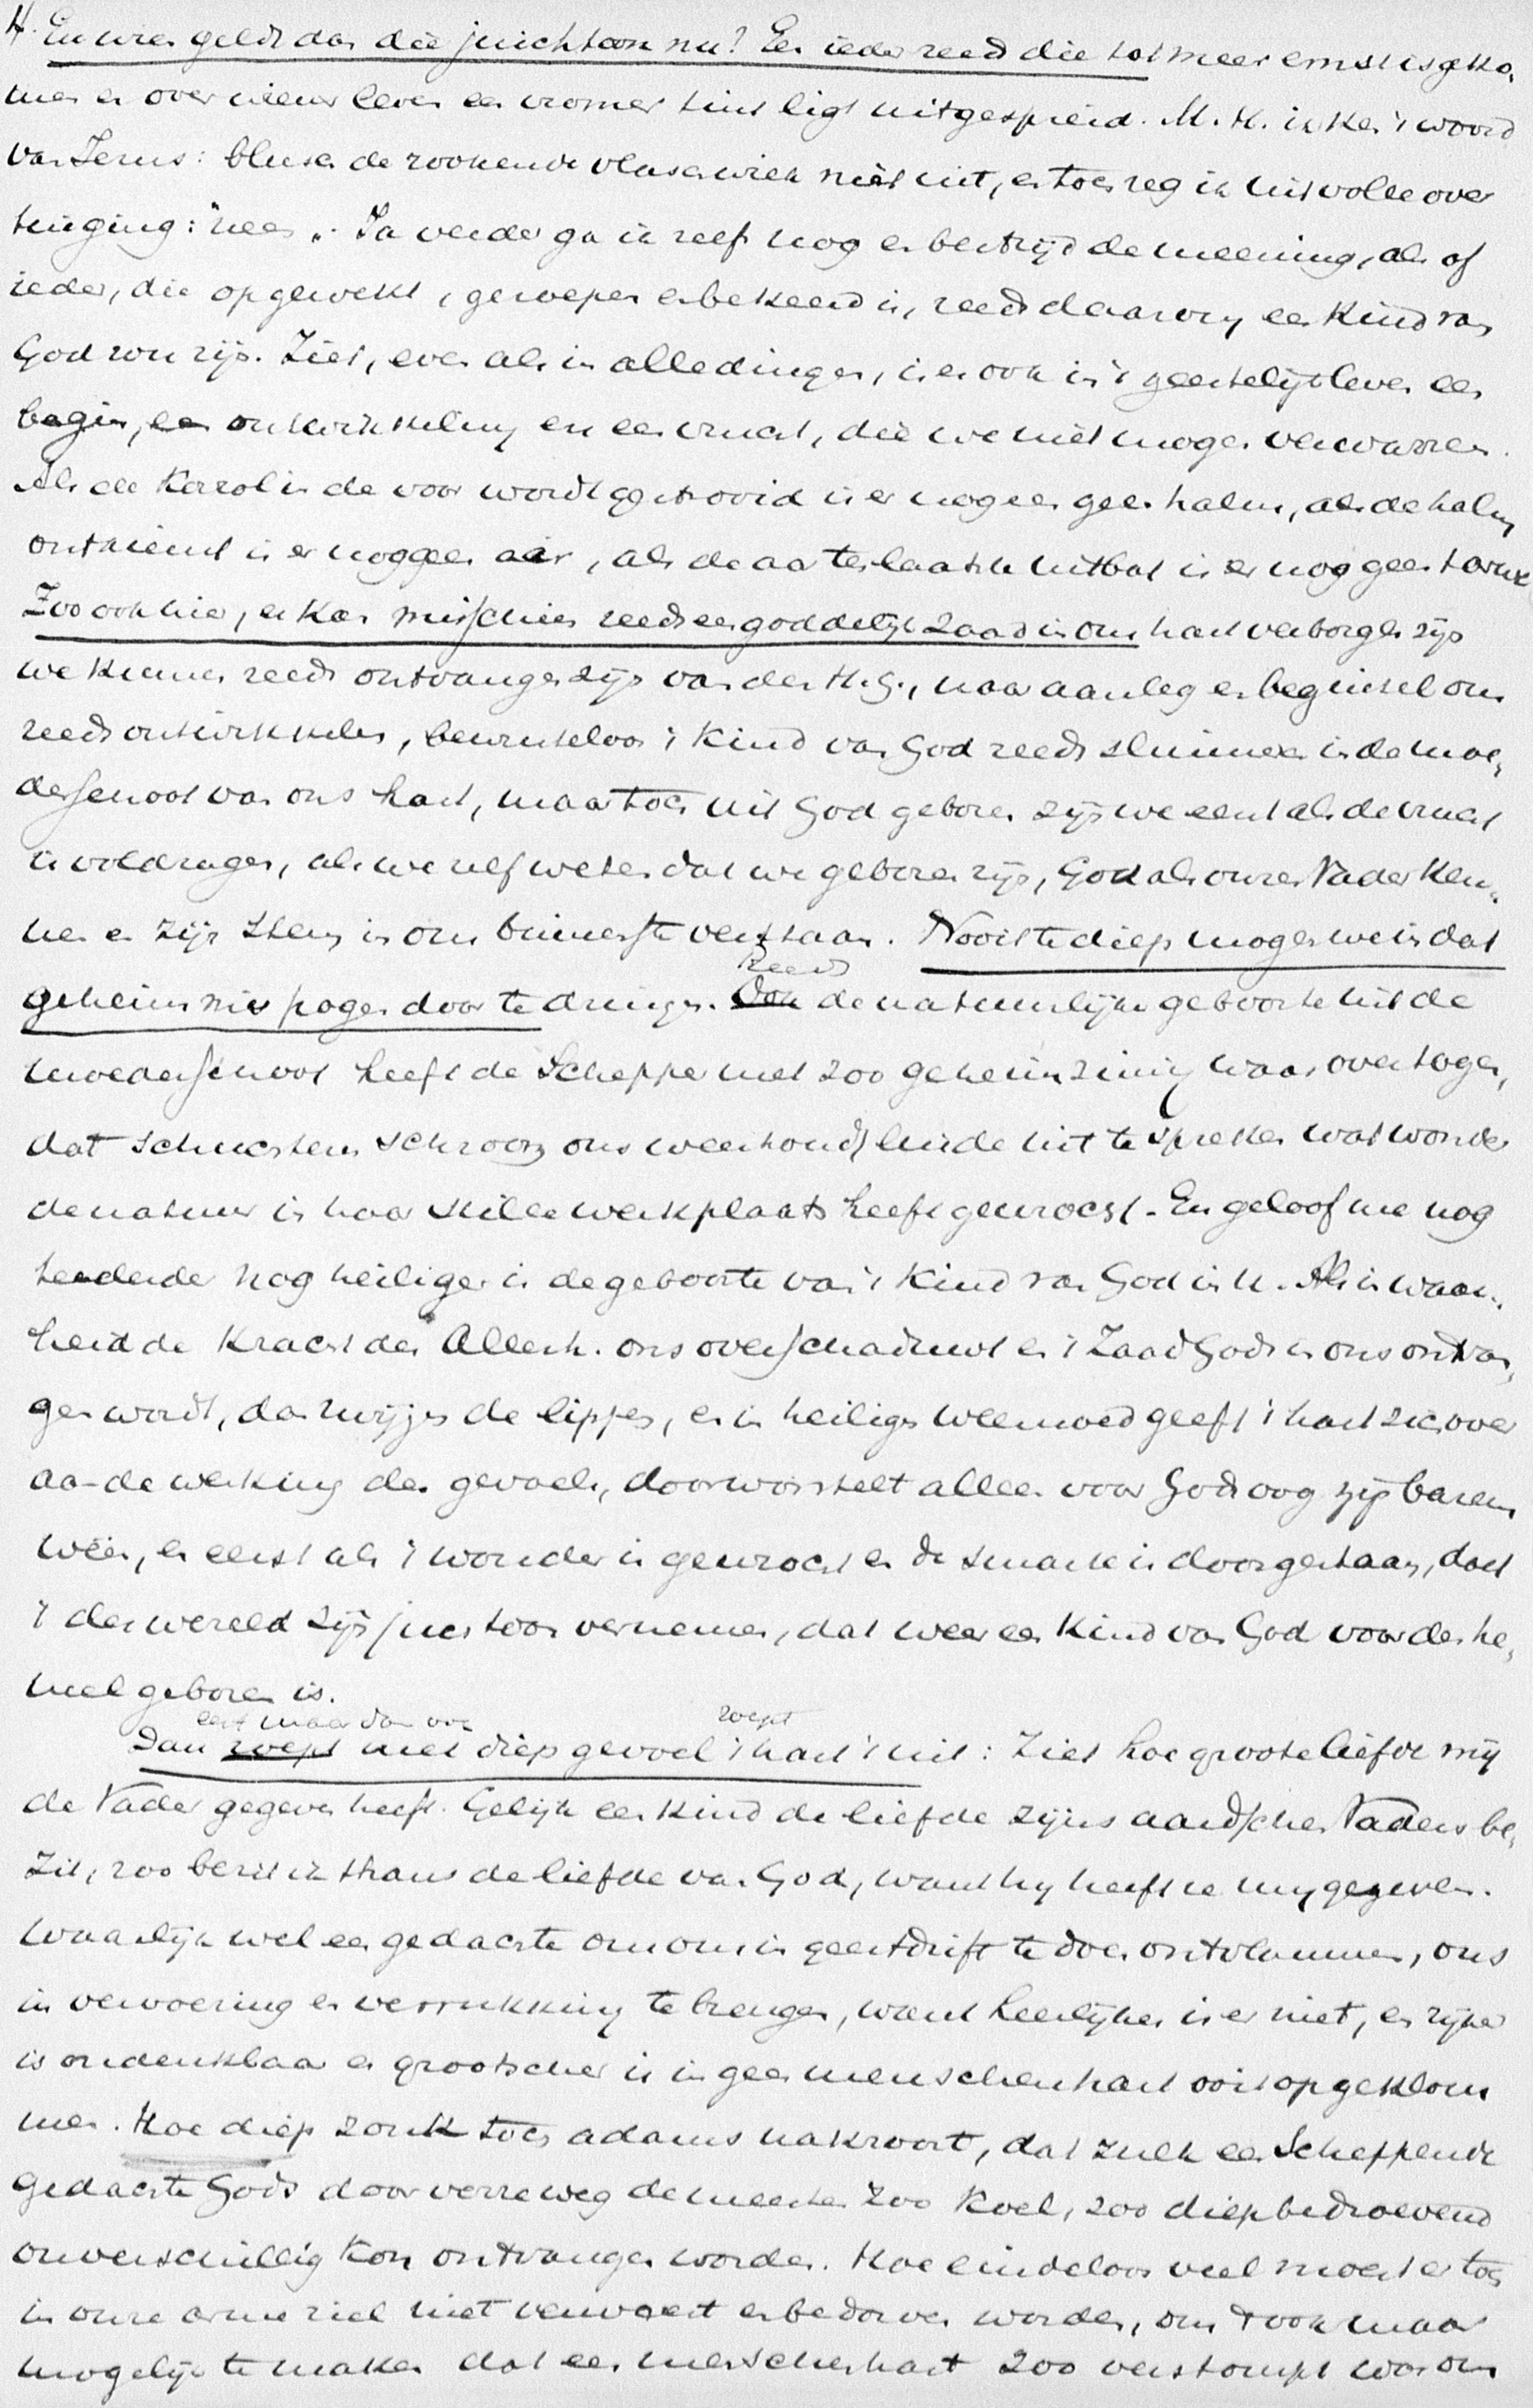 4. En wien geldt dan die juichtoon nu? Een ieder reeds die tot meer ernst is geko-
men en over wiens leven een vromer tint ligt uitgespreid. M. H. ik ken 't woord
van Jezus: bluscht de rookende vlaswiek niet uit, en toch zeg ik uit volle over
tuiging: "neen". Ja verder ga ik zelfs nog en bestrijd de meening, als of
ieder, die opgewekt, geroepen en bekeerd is, reeds daarom een kind van
God zou zijn. Ziet, even als in alle dingen, is er ook in 't geestelijk leven een
begin, een ontwikkeling en een vrucht, die we niet mogen verwarren.
Als de korrel in de voor wordt gestrooid is er nog geen halm, als de halm
ontkiemt is er nog geen aar, als de aar ten laatste uitbot is er nog geen tarwe
Zoo ook hier, er kan misschien reeds een goddelijk zaad in ons hart verborgen zijn
we kunnen reeds ontvangen zijn van den H. G., naar aanleg en beginsel ons
reeds ontwikkelen, bewusteloos 't kind van God reeds sluimeren in de moe-
derschoot van ons hart, maar toch uit God geboren zijn we eerst als de vrucht
is voldragen, als we zelf weten dat we geboren zijn, God als onzen Vader ken-
nen en zijn stem in ons binnenste verstaan. Nooit te diep mogen we in dat
geheimnis pogen door te dringen. Reeds de natuurlijke geboorte uit de
moederschoot heeft de Schepper met zoo geheimzinnig waas overtogen,
dat schuchtere schroom ons weerhoudt luide uit te spreken wat wonder
de natuur in haar stille werkplaats heeft gewrocht. En geloof me nog
teederder nog heiliger is de geboorte van 't kind van God in u. Als in waar-
heid de kracht des Allerh. ons overschaduwt en 't Zaad Gods in ons ontvan-
gen wordt, dan zwijgen de lippen, en in heiligen weemoed geeft 't hart zich over
aan de werking des gevoels, doorworstelt alleen voor Gods oog zijn barens
weën, en eerst als 't wonder is gewrocht en de smart is doorgestaan, doet
't der wereld zijn juichtoon vernemen, dat weer een kind van God voor den he-
mel geboren is.
Dan eerst maar dan ook roept met diep gevoel 't hart 't uit: Ziet hoe groote liefde mij
de Vader gegeven heeft. Gelijk een kind de liefde zijns aardschen Vaders be-
zit, zoo bezit ik thans de liefde van God, want hij heeft ze mij gegeven.
Waarlijk wel een gedachte om ons in geestdrift te doen ontvlammen, ons
in vervoering en verrukking te brengen, want heerlijker is er niet, en rijker
is ondenkbaar en grootscher is in geen menschenhart ooit opgeklom
men. Hoe diep zonk toch adams nakroost, dat zulk een Scheppende
gedachte Gods door verreweg de meesten zoo koel, zoo diep bedroevend
onverschillig kon ontvangen worden. Hoe eindeloos veel moest er toch
in onze arme ziel niet verwoest en bedorven worden, om 't ook maar
mogelijk te maken dat een menschenhart zoo verstompt was om